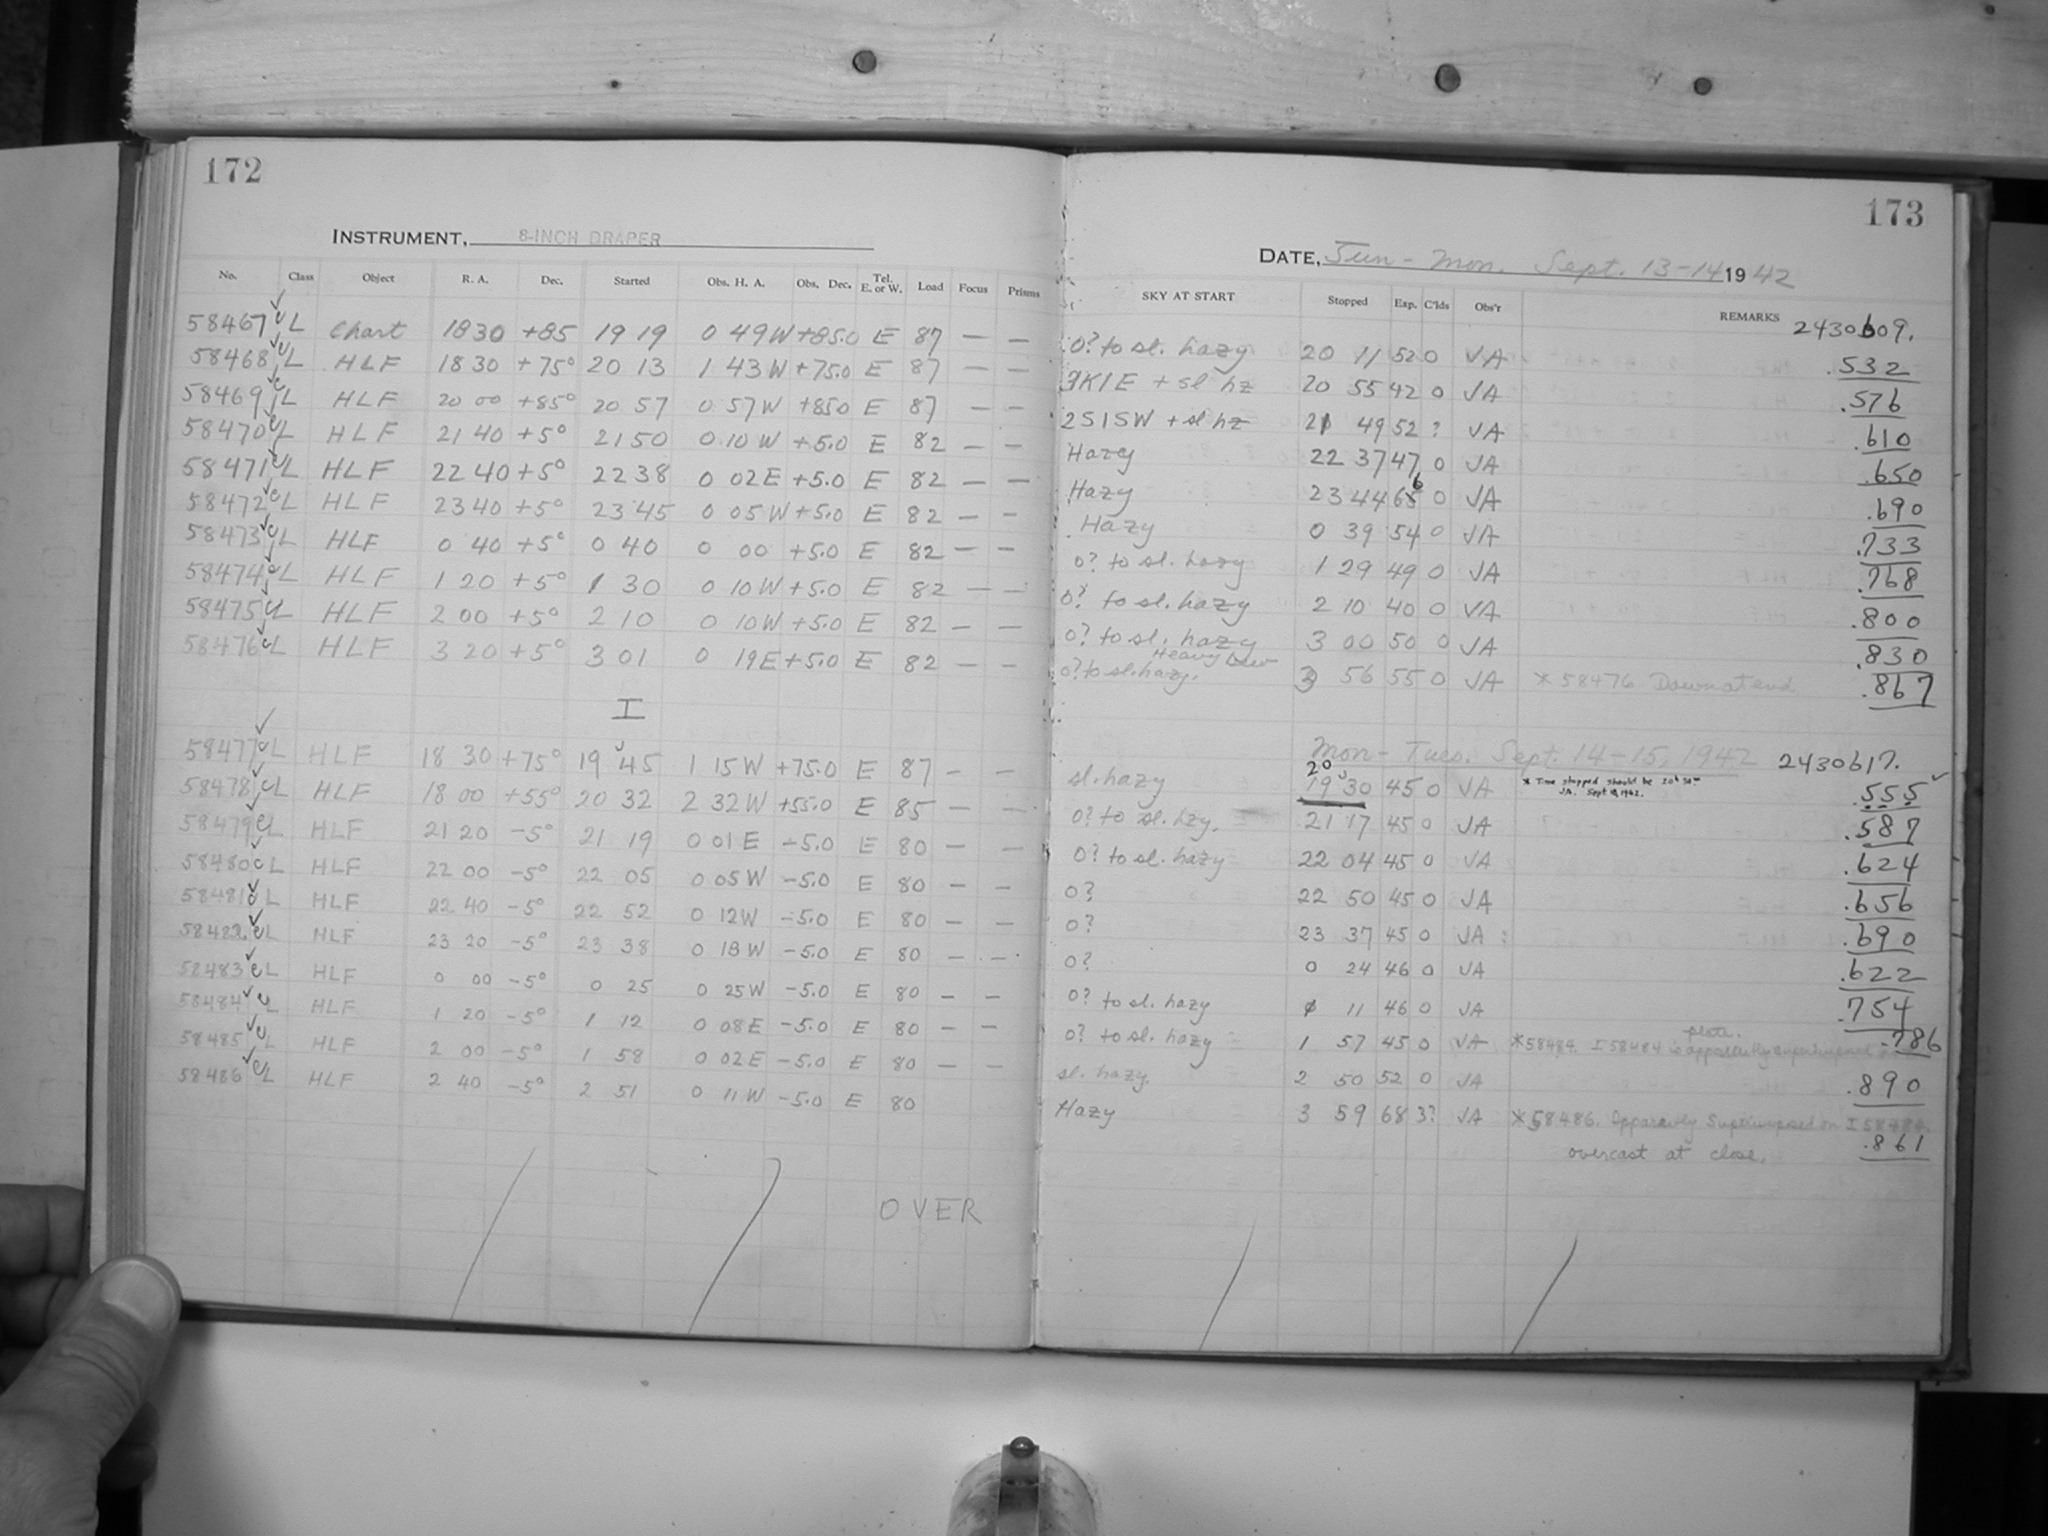 172
INSTRUMENT, 8-INCH DRAPER
No. Class Object R. A. Dec. Started Obs. H. A. Obs. Dec. Tel. E. or W. Load Focus Prisms
58467 cL Chart 18 30 +85 19 19 0 49 W +85.0 E 87 — —
58468 cL HLF 18 30 +75° 20 13 1 43 W +75.0 E 87 — —
58469 cL HLF 20 00 +85° 20 57 0 57 W +85.0 E 87 — —
58470 cL HLF 21 40 +5° 21 50 0 10 W +5.0 E 82 — —
58471 cL HLF 22 40 +5° 22 38 0 02 E +5.0 E 82 — —
58472 cL HLF 23 40 +5° 23 45 0 05 W +5.0 E 82 — —
58473 cL HLF 0 40 +5° 0 40 0 00 +5.0 E 82 — —
58474 cL HLF 1 20 +5° 1 30 0 10 W +5.0 E 82 — —
58475 cL HLF 2 00 +5° 2 10 0 10 W +5.0 E 82 — —
58476 cL HLF 3 20 +5° 3 01 0 19 E +5.0 E 82 — —
I
58477 cL HLF 18 30 +75° 19 45 1 15 W +75.0 E 87 — —
58478 cL HLF 18 00 +55° 20 32 2 32 W +55.0 E 85 — —
58479 cL HLF 21 20 -5° 21 19 0 01 E -5.0 E 80 — —
58480 cL HLF 22 00 -5° 22 05 0 05 W -5.0 E 80 — —
58481 cL HLF 22 40 -5° 22 52 0 12 W -5.0 E 80 — —
58482 cL HLF 23 20 -5° 23 38 0 18 W -5.0 E 80 — —
58483 cL HLF 0 00 -5° 0 25 0 25 W -5.0 E 80 — —
58484 cL HLF 1 20 -5° 1 12 0 08 E -5.0 E 80 — —
58485 cL HLF 2 00 -5° 1 58 0 02 E -5.0 E 80 — —
58486 cL HLF 2 40 -5° 2 51 0 11 W -5.0 E 80
OVER
173
DATE, Sun - Mon. Sept. 13-14 1942
SKY AT START Stopped Exp. C'lds Obs'r REMARKS
2430609.
0? to sl. hazy 20 11 52 0 JA .532
1K1E + sl hz 20 55 42 0 JA .576
2S1SW + sl hz 21 49 52 ? JA .610
Hazy 22 37 47 0 JA .650
Hazy 23 44 66 0 JA .690
Hazy 0 39 54 0 JA .733
0? to sl. hazy 1 29 49 0 JA .768
0? to sl. hazy 2 10 40 0 JA .800
0? to sl. hazy 3 00 50 0 JA .830
Heavy Dew
0? to sl. hazy. 3 56 55 0 JA * 58476 Dawn at end .867
Mon - Tues. Sept. 14-15, 1942 2430617.
sl. hazy 20 19 30 45 0 JA * Time stopped should be 20h 30m .555
JA. Sept 1942.
0? to sl. hzy. 21 17 45 0 JA .587
0? to sl. hazy 22 04 45 0 JA .624
0? 22 50 45 0 JA .656
0? 23 37 45 0 JA .690
0? 0 24 46 0 JA .622
0? to sl. hazy 1 11 46 0 JA .754
plate.
0? to sl. hazy 1 57 45 0 JA *58484. I 58484 is apparently superimposed .786
sl. hazy. 2 50 52 0 JA .890
Hazy 3 59 68 3? JA *58486. Apparently Superimposed on I 58484.
.861
overcast at close.